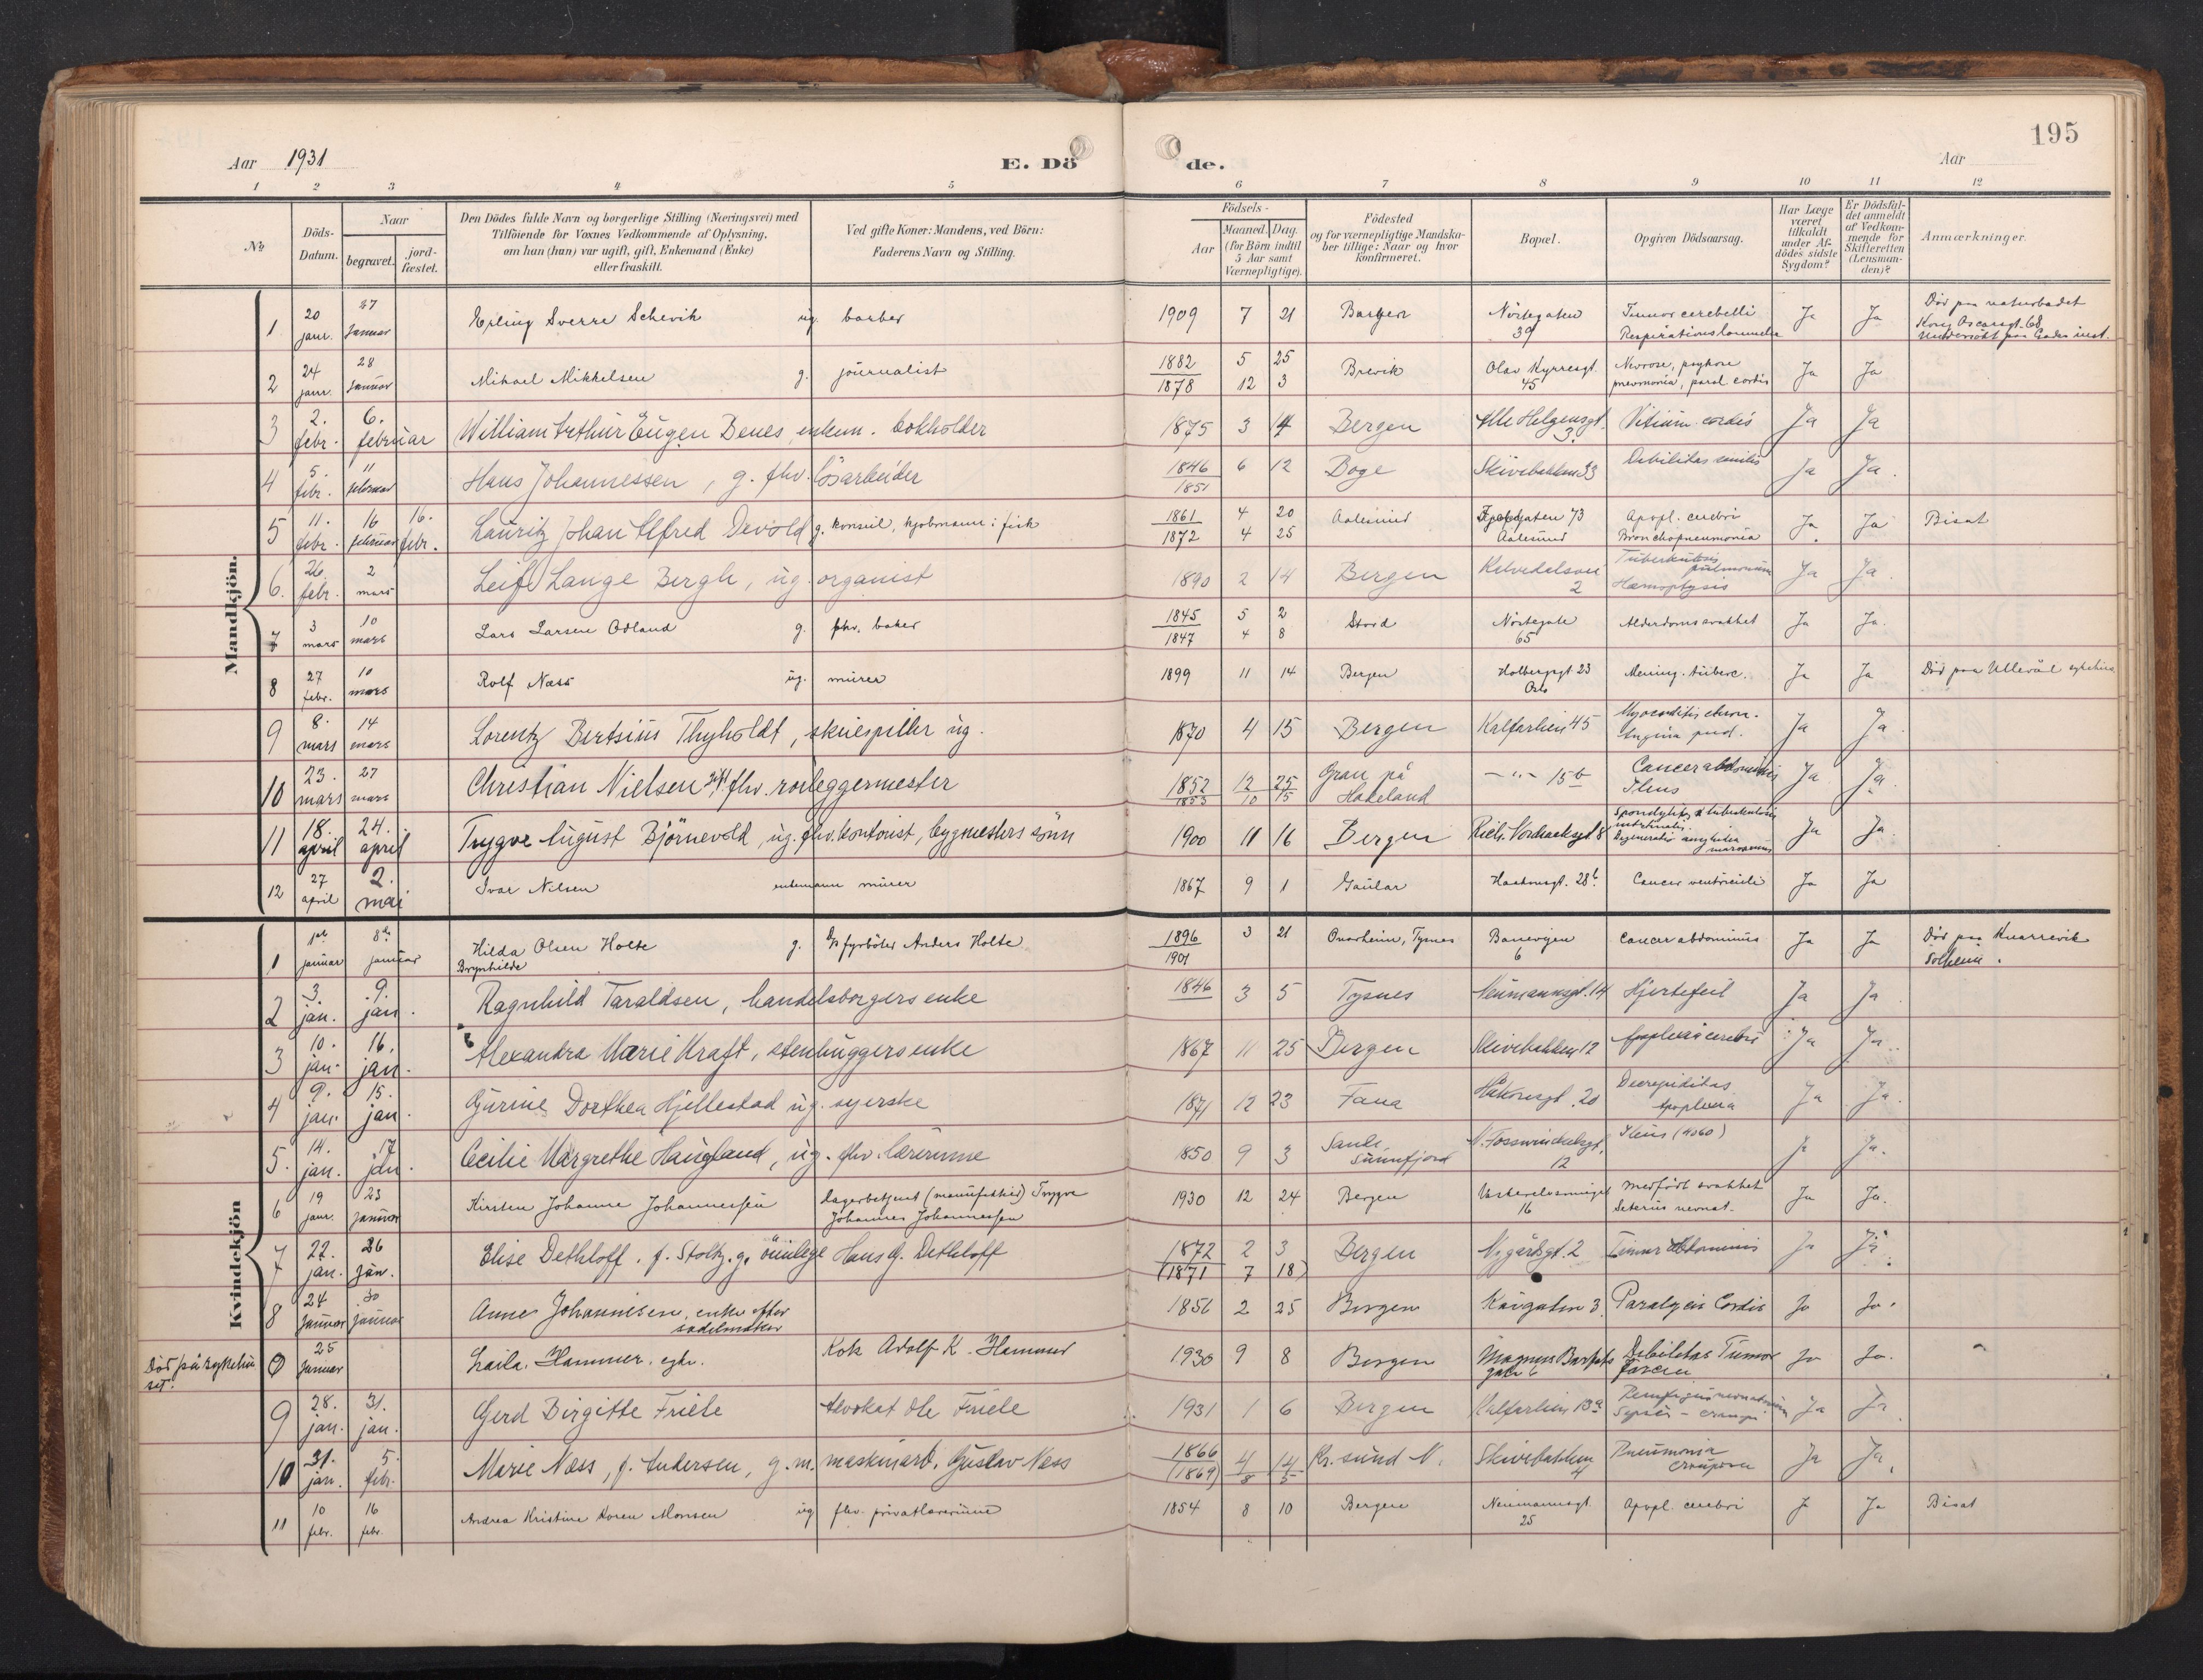 195
Aar 1931
E. Dö
de.
Aar
1 2 3 4 5 6 7 8 9 10 11 12
No
Döds-Datum.
Naar
begravet.
jord-fæstet.
Den Dödes fulde Navn og borgerlige Stilling (Næringsvei) med
Tilföiende for Voxnes Vedkommende af Oplysning,
om han (hun) var ugift, gift, Enkemand (Enke)
eller fraskilt.
Ved gifte Koner: Mandens, ved Börn:
Faderens Navn og Stilling.
Födsels-
Aar
Maaned.
Dag.
(for Börn indtil
5 Aar samt
Værnepligtige).
Födested
og for værnepligtige Mandska-
ber tillige: Naar og hvor
konfirmeret.
Bopæl.
Opgiven Dödsaarsag.
Har Læge
været
tilkaldt
under Af-
dödes sidste
Sygdom?
Er Dödsfal-
det anmeldt
af Vedkom-
mende for
Skifteretten
(Lensman-
den)?
Anmærkninger.
Mandkjön.
1 20 janr. 27 Januar Erling Sverre Schevik ug. barber 1909 7 21 Bergen Nörtegaten 39 Tumor cerebelli Ja Ja Död paa naturbadet Kong Oscarsgt. 68
2 24 janr. 28 Januar Mikael Mikkelsen g. journalist 1882 1878 5 25 12 3 Brevik Olav Kyrresgt. 45 Nevrose, psykose pnevmonia, paral. cordis Ja Ja
3 2. febr. 6. februar William Arthur Eugen Benes enkem. bokholder 1875 3 14 Bergen Alle Helgensgt. 3. Vitium cordis Ja Ja
4 5. febr. 11 februar Hans Johannessen, g. fhv. lösarbeider 1846 1851 6 12 Boge Skivebakken 33 Debilitas senilis Ja Ja.
5 11. febr. 16 februar 16. febr. Lauritz Johan Alfred Devold g. konsul, kjöbmann i fisk 1861 1872 4 20 4 25 Aalesund 73 Aalesund Apopl. cerebri Bronchopneumonia Ja. Ja Bisat
6. 26 febr. 2 mars Leif Lange Bergh, ug. organist 1890 2 14 Bergen Kalvedalsvei 2 Tuberkulosis pulmonum Hæmoptysis Ja Ja.
7 3 mars 10 mars Lars Larsen Odland g. fhv. baker 1845 1847 5 2 4 8 Stord Nörtegate 65 Alderdomssvakhet Ja Ja.
8 27 febr. 10 mars Rolf Næss ug. murer 1899 11 14 Bergen Holbergsgt 23 Oslo Mening. tuberc. Ja Ja Död paa Ullevål sykehus
9 8. mars 14 mars Lorentz Bertsius Thyholdt, skuespiller ug. 1870 4 15 Bergen Kalfarlien 45 Myocarditis chron. Angina pect. Ja Ja.
10 23. mars 27 mars Christian Nielsen gift fhv. rörleggermester 1852 1853 12 25 10 15 Gran på Hadeland — " — 15b Cancer abdominis Ileus Ja Ja.
11 18. april 24. april Trygve August Björnevold, ug. fhv. kontorist, bygmesters sönn 1900 11 16 Bergen Rich. Nordraaksgt 8 Spondylitis tuberkulosis Ja Ja.
12 27 april 2. mai Ivar Nilsen enkemann murer 1867 9 1 Gaular Haakonsgt. 28b Cancer ventriculi Ja Ja
Kvindekjön
1 1ste januar 8de januar Hilda Olsen Holte Brynhilde g. fyrböter Anders Holte 1896 1901 3 21 Onarheim, Tysnes Banevejen 6 Cancer abdominis Ja Ja Död paa Knarrevik Solheim.
2 3. jan. 9. jan. Ragnhild Taraldsen, handelsborgers enke 1846 3 5 Tysnes Neumannsgt. 14 Hjertefeil Ja Ja
3 10. jan. 16. jan. Alexandra Marie Kraft, stenhuggers enke 1867 11 25 Bergen Skivebakken 12 Apoplexia cerebri Ja Ja.
4 9. jan. 15. jan. Gurine Dorthea Hjellestad ug. syerske 1871 12 23 Fana Håkonsgt. 20 Decrepiditas Apoplexia Ja Ja.
5. 14. jan. 17 jan. Cecilie Margrethe Haugland, ug. fhv. lærerinne 1850 9 3 Sande, Sunnfjord N. Fosswinckelsgt. 12 Ileus Ja.
6 19 janr. 23 januar Kirsten Johanne Johannessen lagerbetjent (manufaktur) Trygve Johannes Johannessen 1930 12 24 Bergen 16 Medfödt svakhet Icterus neonat. Ja Ja.
7 22. jan. 26 jan. Elise Dethloff, f. Stoltz. g. m öienlæge Hans G. Dethloff 1872 (1871 2 3 7 18) Bergen Nygårdsgt. 2 Tumor Abdominis Ja Ja.
8 24 januar 30 januar Anne Johannesen, enke efter sadelmaker 1851 2 25 Bergen Kårgaten 3 Paralysis Cordis Ja Ja.
Död på sykehuset. 0 25 Januar Laila Hammer, egte. Kok Adolf K. Hammer 1930 9 8 Bergen Magnus Barfots gate 6 Debilitas Tumor Ja Ja.
9 28. jan. 31. jan. Gerd Birgitte Friele Advokat Ole Friele 1931 1 6 Bergen Kalfarlien 13a Pemfigus neonatorum Sepsis Ja Ja
10 31. jan. 5. febr. Marie Næss, f. Andersen, g. m. maskinarb. Gustav Næss 1866 (1869) 4 14 8 5 Kr. sund N. Skivebakken 4 Pneumonia crouposa Ja Ja.
11 10 febr. 16 febr. Andrea Kristine Koren Monsen ug fhv. privatlærerinne 1854 8 10 Bergen Neumannsgt 25 Apopl. cerebri Ja Ja Bisat